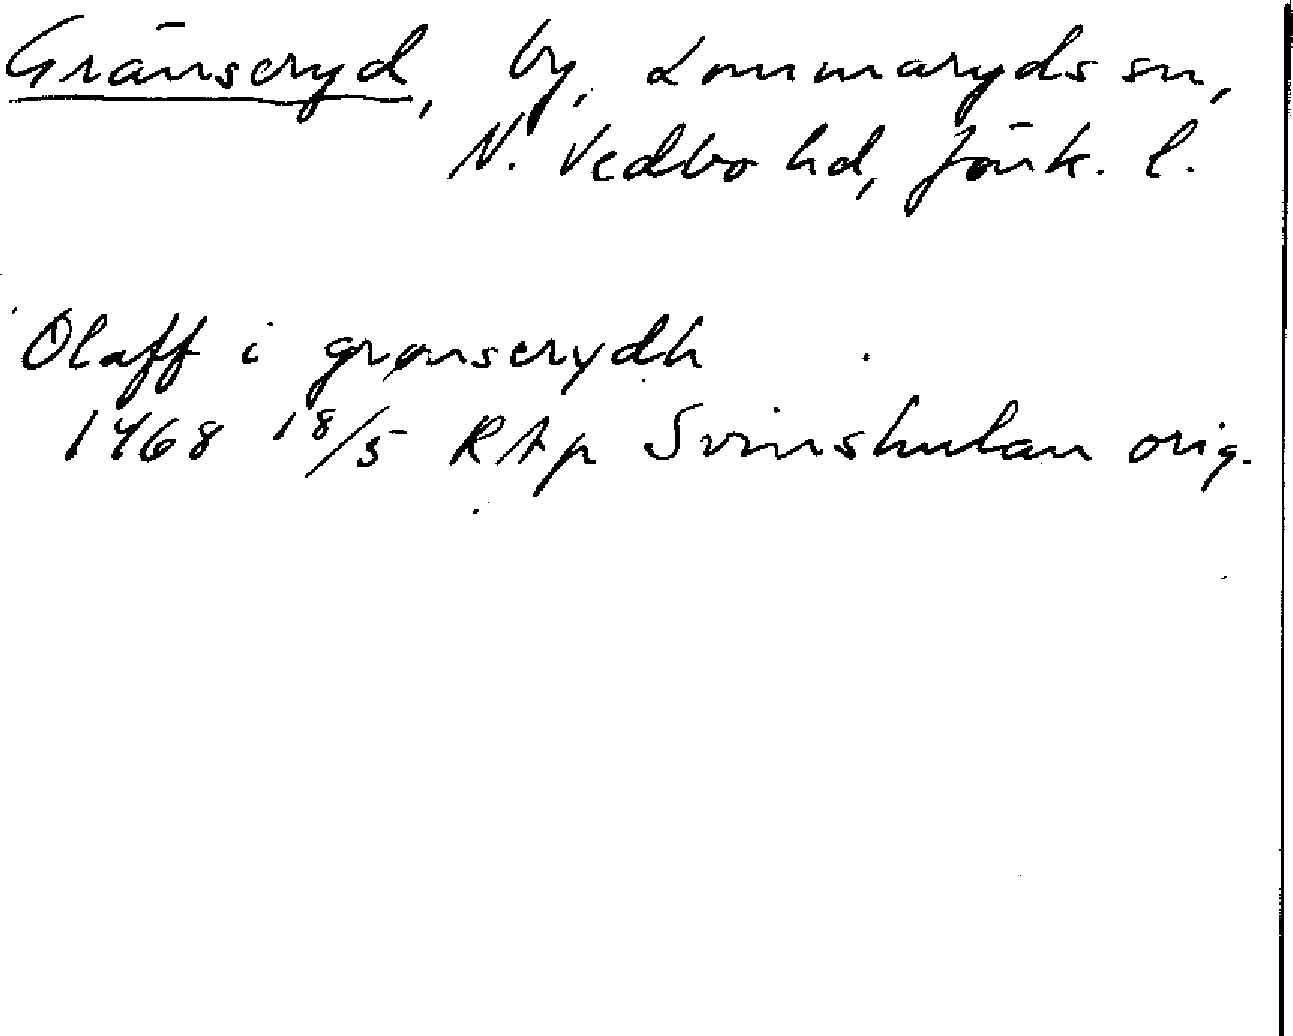 Gränseryd, by, Lommaryds sn,
N. Vedbo hd, Jönk. l.
Olaff i grønserydh
1468 18/5 RAp Svinshulan orig.